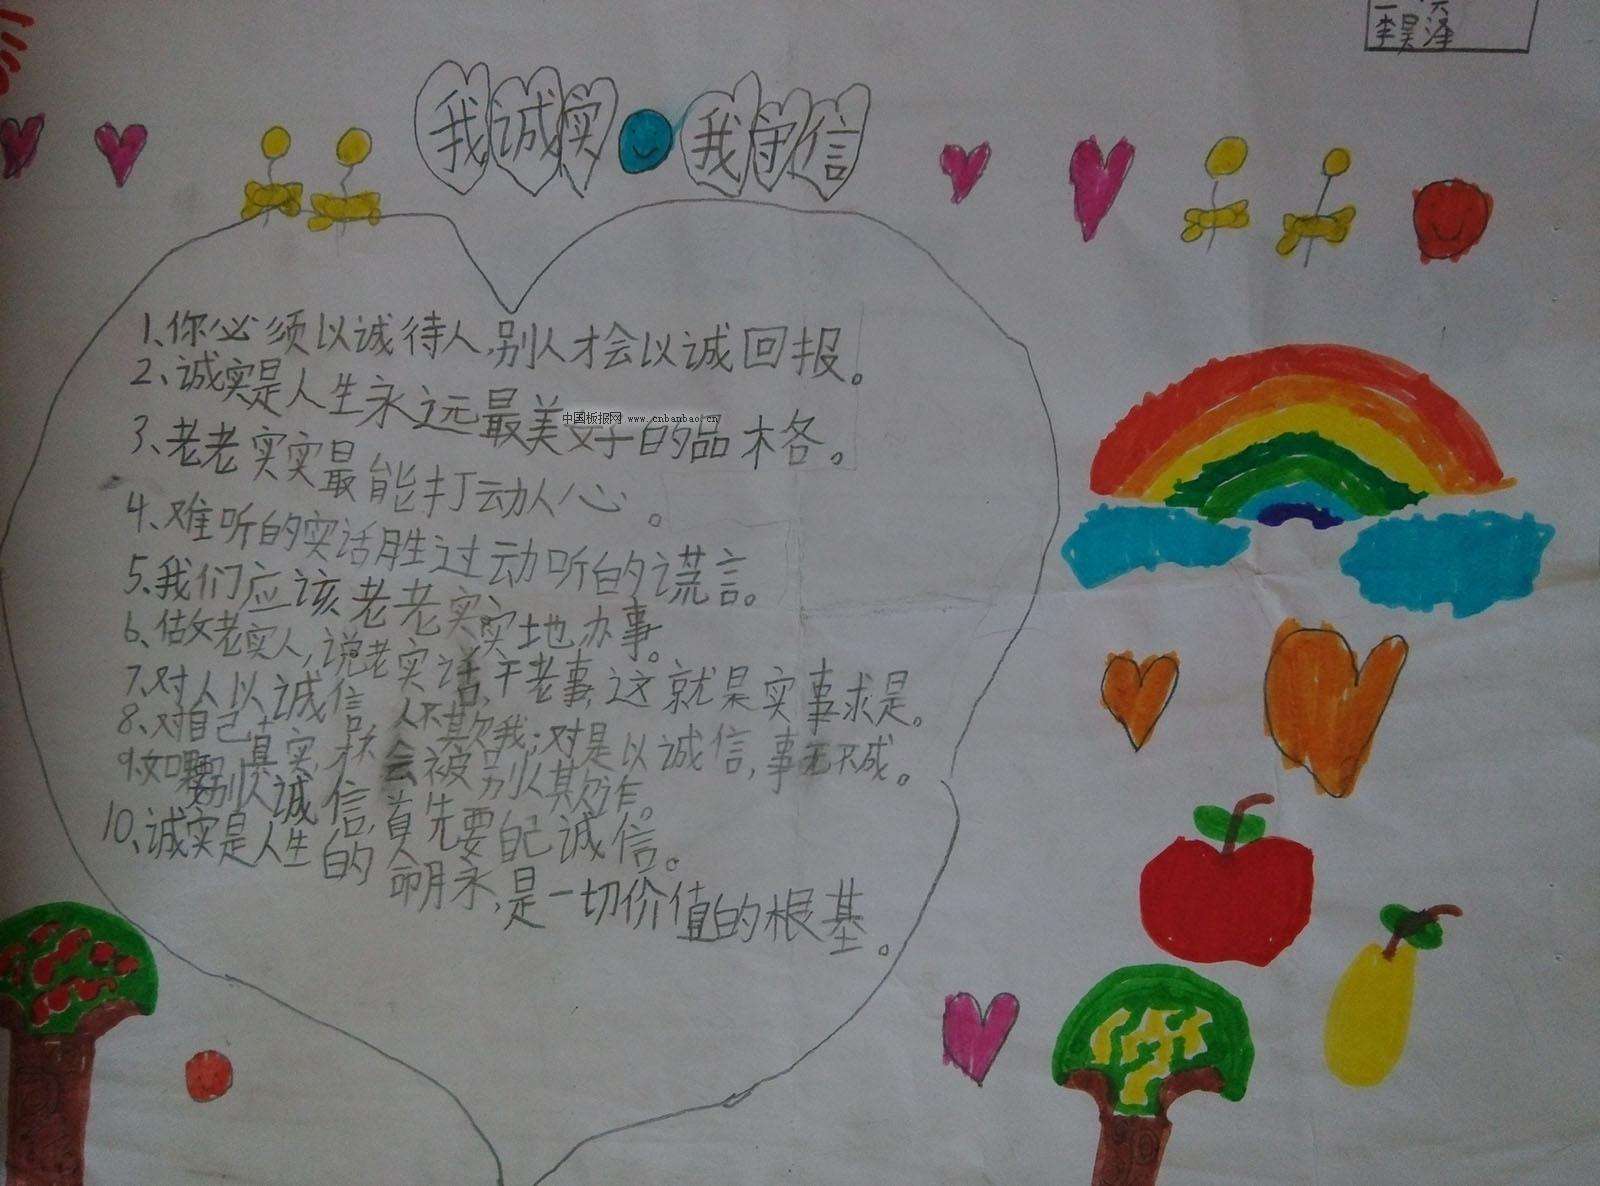 李昊泽
我诚实 我守信
1、你必须以诚待人,别人才会以诚回报。
2、诚实是人生永远最美好的品格。
中国板报网 www.cnbanbao.cn
3、老老实实最能打动人心。
4、难听的实话胜过动听的谎言。
5、我们应该老老实实地办事。
6、做老实人,说老实话,干老事,这就是实事求是。
7、对人以诚信,人不欺我;对是以诚信,事无不成。
8、对自己真实,才会被别人欺诈。
9、如果要别人诚信,首先要自己诚信。
10、诚实是人生的命永,是一切价值的根基。